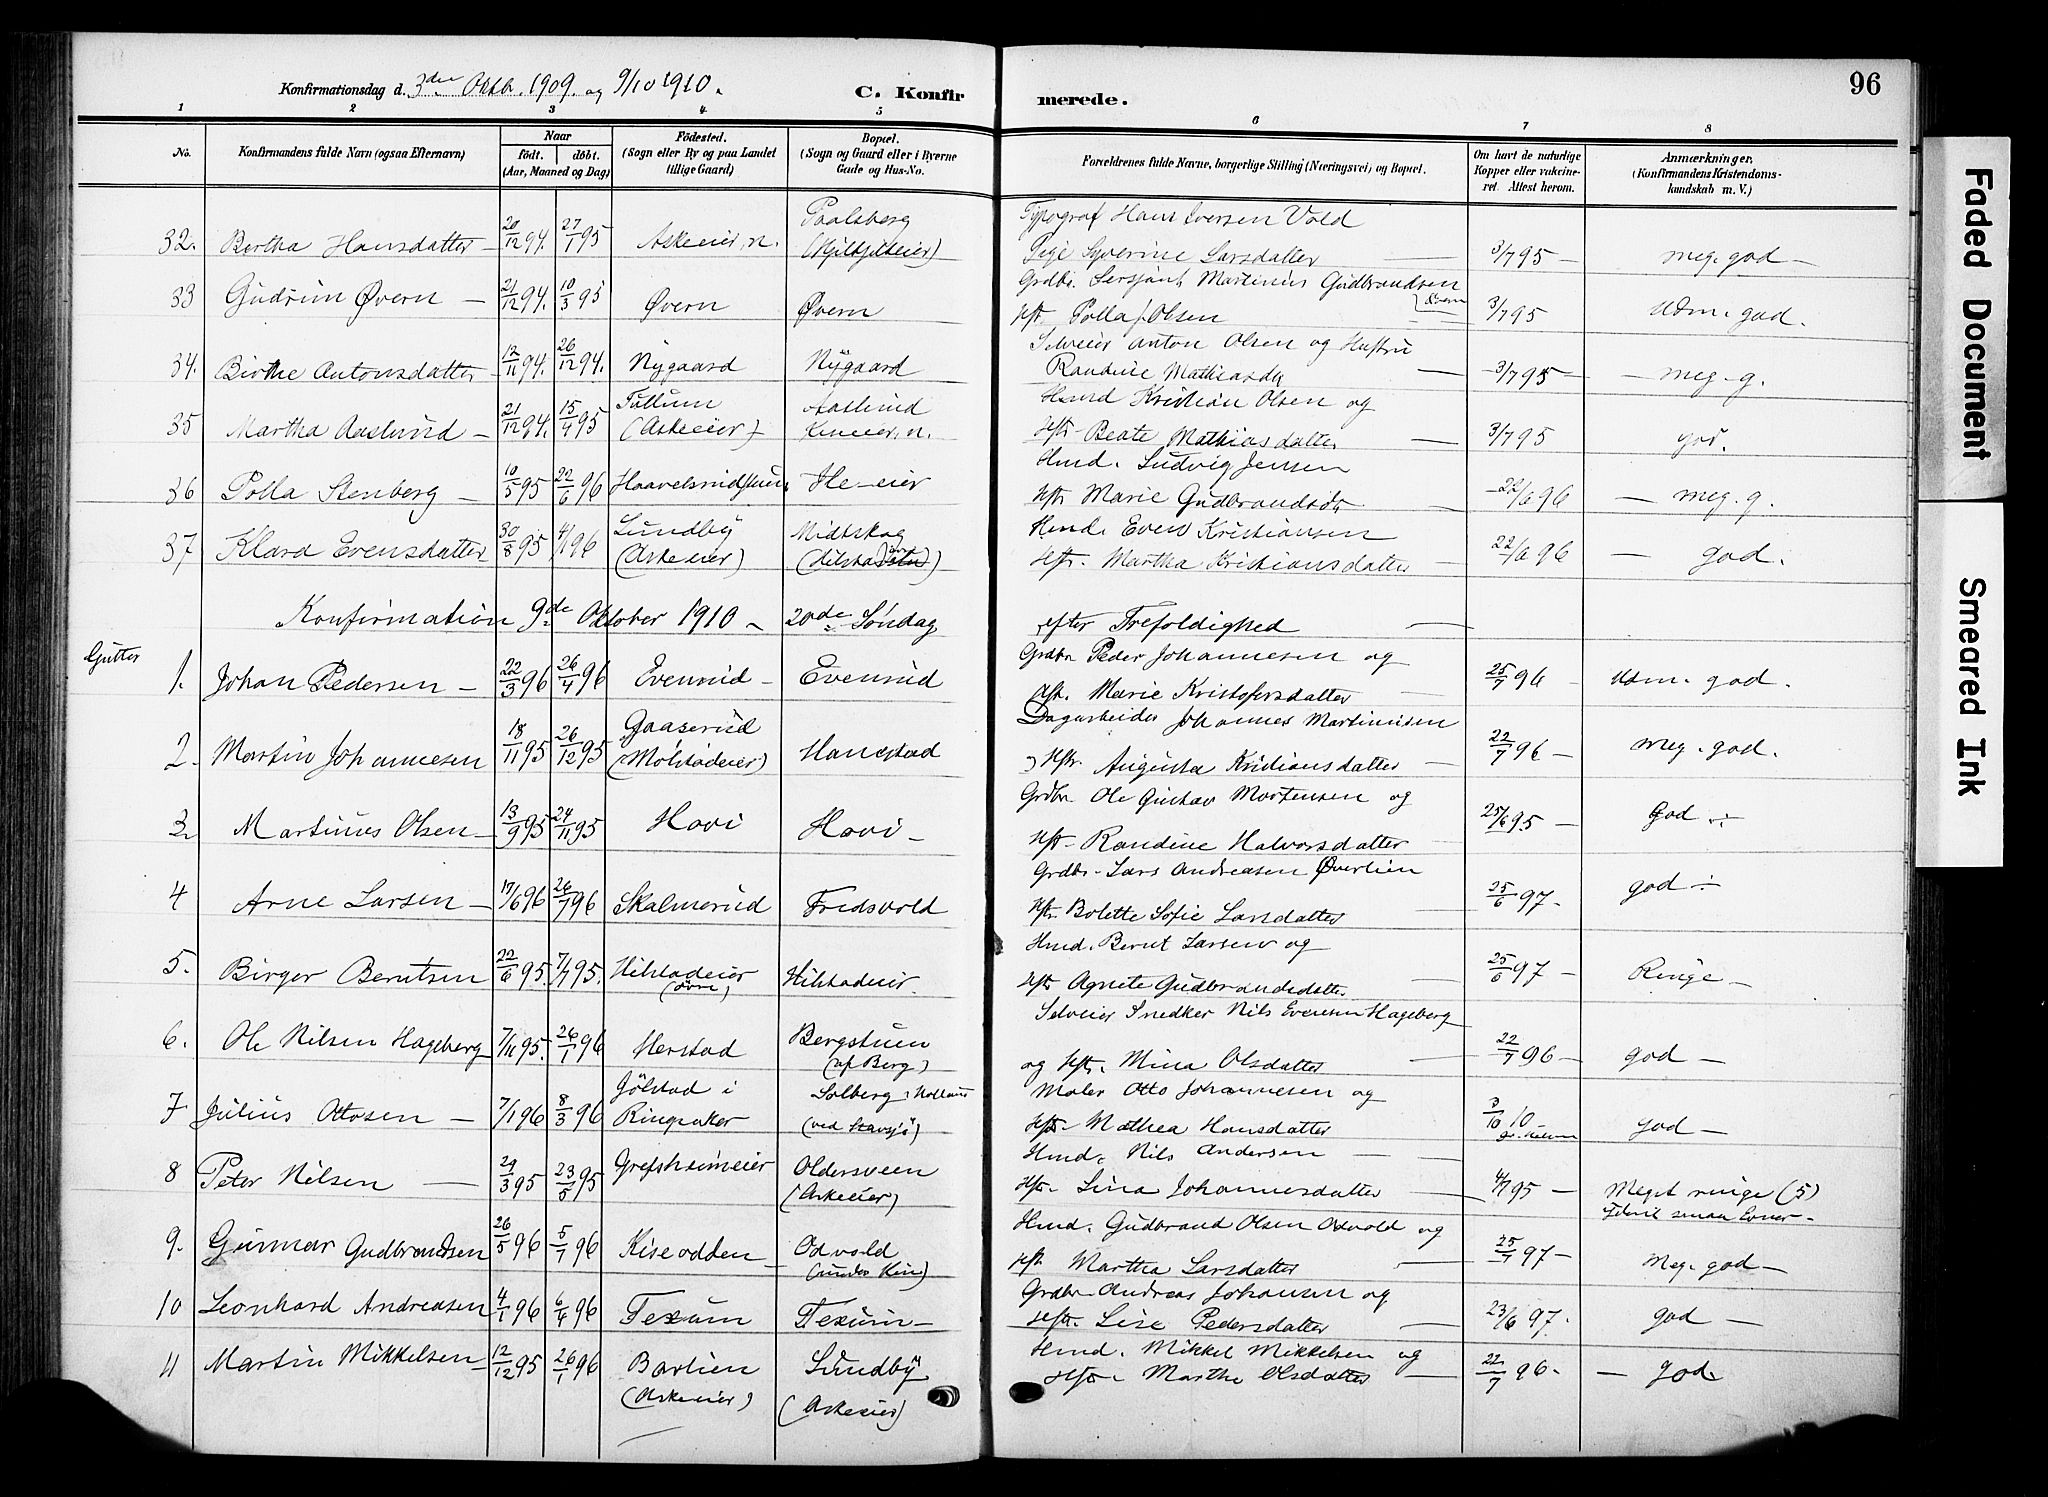 Konfirmationsdag d. 3die Oktb. 1909. og 9/10 1910. C. Konfirmerede. 96
1 2 3 4 5 6 7 8
No. Konfirmandens fulde Navn (ogsaa Efternavn) Naar födt. döbt. (Aar, Maaned og Dag) Födested. (Sogn eller By og paa Landet tillige Gaard) Bopæl. (Sogn og Gaard eller i Byerne Gade og Hus-No. Forældrenes fulde Navne, borgerlige Stilling (Næringsvei) og Bopæl. Om havt de naturlige Kopper eller vakcineret. Attest herom. Anmærkninger. (Konfirmandens Kristendomskundskab m. V.)
32. Bertha Hansdatter – 20/12 94. 27/1 95 Askeeier, n. Paalsberg Typograf Hans Iversen Vold
Pige Syverine Larsdatter – 3/7 95 – meg. god –
33 Gudrun Øvern – 21/12 94. 10/3 95 Øvern Øvern Grdbr. Sersjant Martinus Gudbrandsen
Hst. Polla J. Olsen 3/7 95 Udm. god.
34. Birthe Antonsdatter 12/11 94. 26/12 94. Nygaard Nygaard Selveier Anton Olsen og Hustru
Randine Mathiasdtr – 3/7 95 – – meg. g.
35 Martha Aaslund – 21/12 94. 15/4 95 Tullum (Askeeier) Aaslund n. Hmd Kristian Olsen og
Hstr Beate Mathiasdatter – 3/7 95 god.
36 Polla Stenberg – 10/5 95 22/6 96 He-eier Hmd. Ludvig Jensen
Hstr Marie Gudbrandsdtr – 22/6 96 – meg. g.
37 Klara Evensdatter 30/8 95 4/1 96 Lundby (Askeeier) Midtskog Hmd. Even Kristiansen
Hstr. Martha Kristiansdatter – 22/6 96 – god.
Konfirmation 9de Oktober 1910 – 20de Søndag efter Trefoldighed –
Gutter
1. Johan Pedersen – 22/3 96 26/4 96 Evenrud – Evenrud Grdbr Peder Johannesen og
Hst. Marie Kristofersdatter – 25/7 96 – Udm. god.
2. Martin Johannesen 18/11 95 26/12 95 Gaaserud (Molstadeier) Hanestad Dagarbeider Johannes Martinusen
Hstr. Augusta Kristiansdatter – 22/7 96 – meg. god.
3. Martinus Olsen – 13/9 95 24/11 95 Hovi Hovi – Grdbr Ole Gustav Mortensen og
Hst. Randine Halvorsdatter – 25/6 95 – God
4 Arne Larsen – 17/6 96 26/7 96 Skalmerud Fredsvold Grdbr. Lars Andreasen Øverlien
Hstr. Bolette Sofie Larsdatter – 25/6 97. god
5. Birger Berntsen 22/6 95. 7/7 95. Hilstadeier Hilstadeier. Hmd. Bernt Larsen og
Hstr Agnete Gudbrandsdatter 25/6 97 – Ringe –
6. Ole Nilsen Hageberg 7/11 95. 26/1 96 Herstad Bergstuen (af Berg) Selveier Snedker Nils Evensen Hageberg
og Hstr. Mina Olsdatter – 22/7 96 – god –
7 Julius Ottosen – 7/1 96 8/3 96 Jölstad i Ringsaker Solberg (ved Stavsjö) Maler Otto Johannesen og
Hstr. Mathea Hansdatter 10 – god –
8 Peter Nilsen – 29/3 95 23/5 95 Grefsheimeier Oldersveen (Askeeier) Hmd. Nils Andersen –
Hstr. Lina Johannesdatter – 4/7 95 – Meget ringe (5)
smaa Evner –
9. Gunnar Gudbrandsen 26/5 96 5/7 96 Kiseodden Odvold Hmd. Gudbrand Olsen Odvold og
Hst. Martha Larsdatter – 25/7 97 – Meg. god –
10 Leonhard Andreasen 4/1 96 6/4 96 Texum Texum – Grdbr Andreas Johansen og
Hstr. Lise Pedersdatter – 23/6 97. god –
11 Martin Mikkelsen – 12/12 95 26/1 96 Barlien (Askeeier) Lundby (Askeeier) Hmd. Mikkel Mikkelsen og
Hstr. Marthe Olsdatter – 22/7 96 – – god.
Faded Document
Smeared Ink